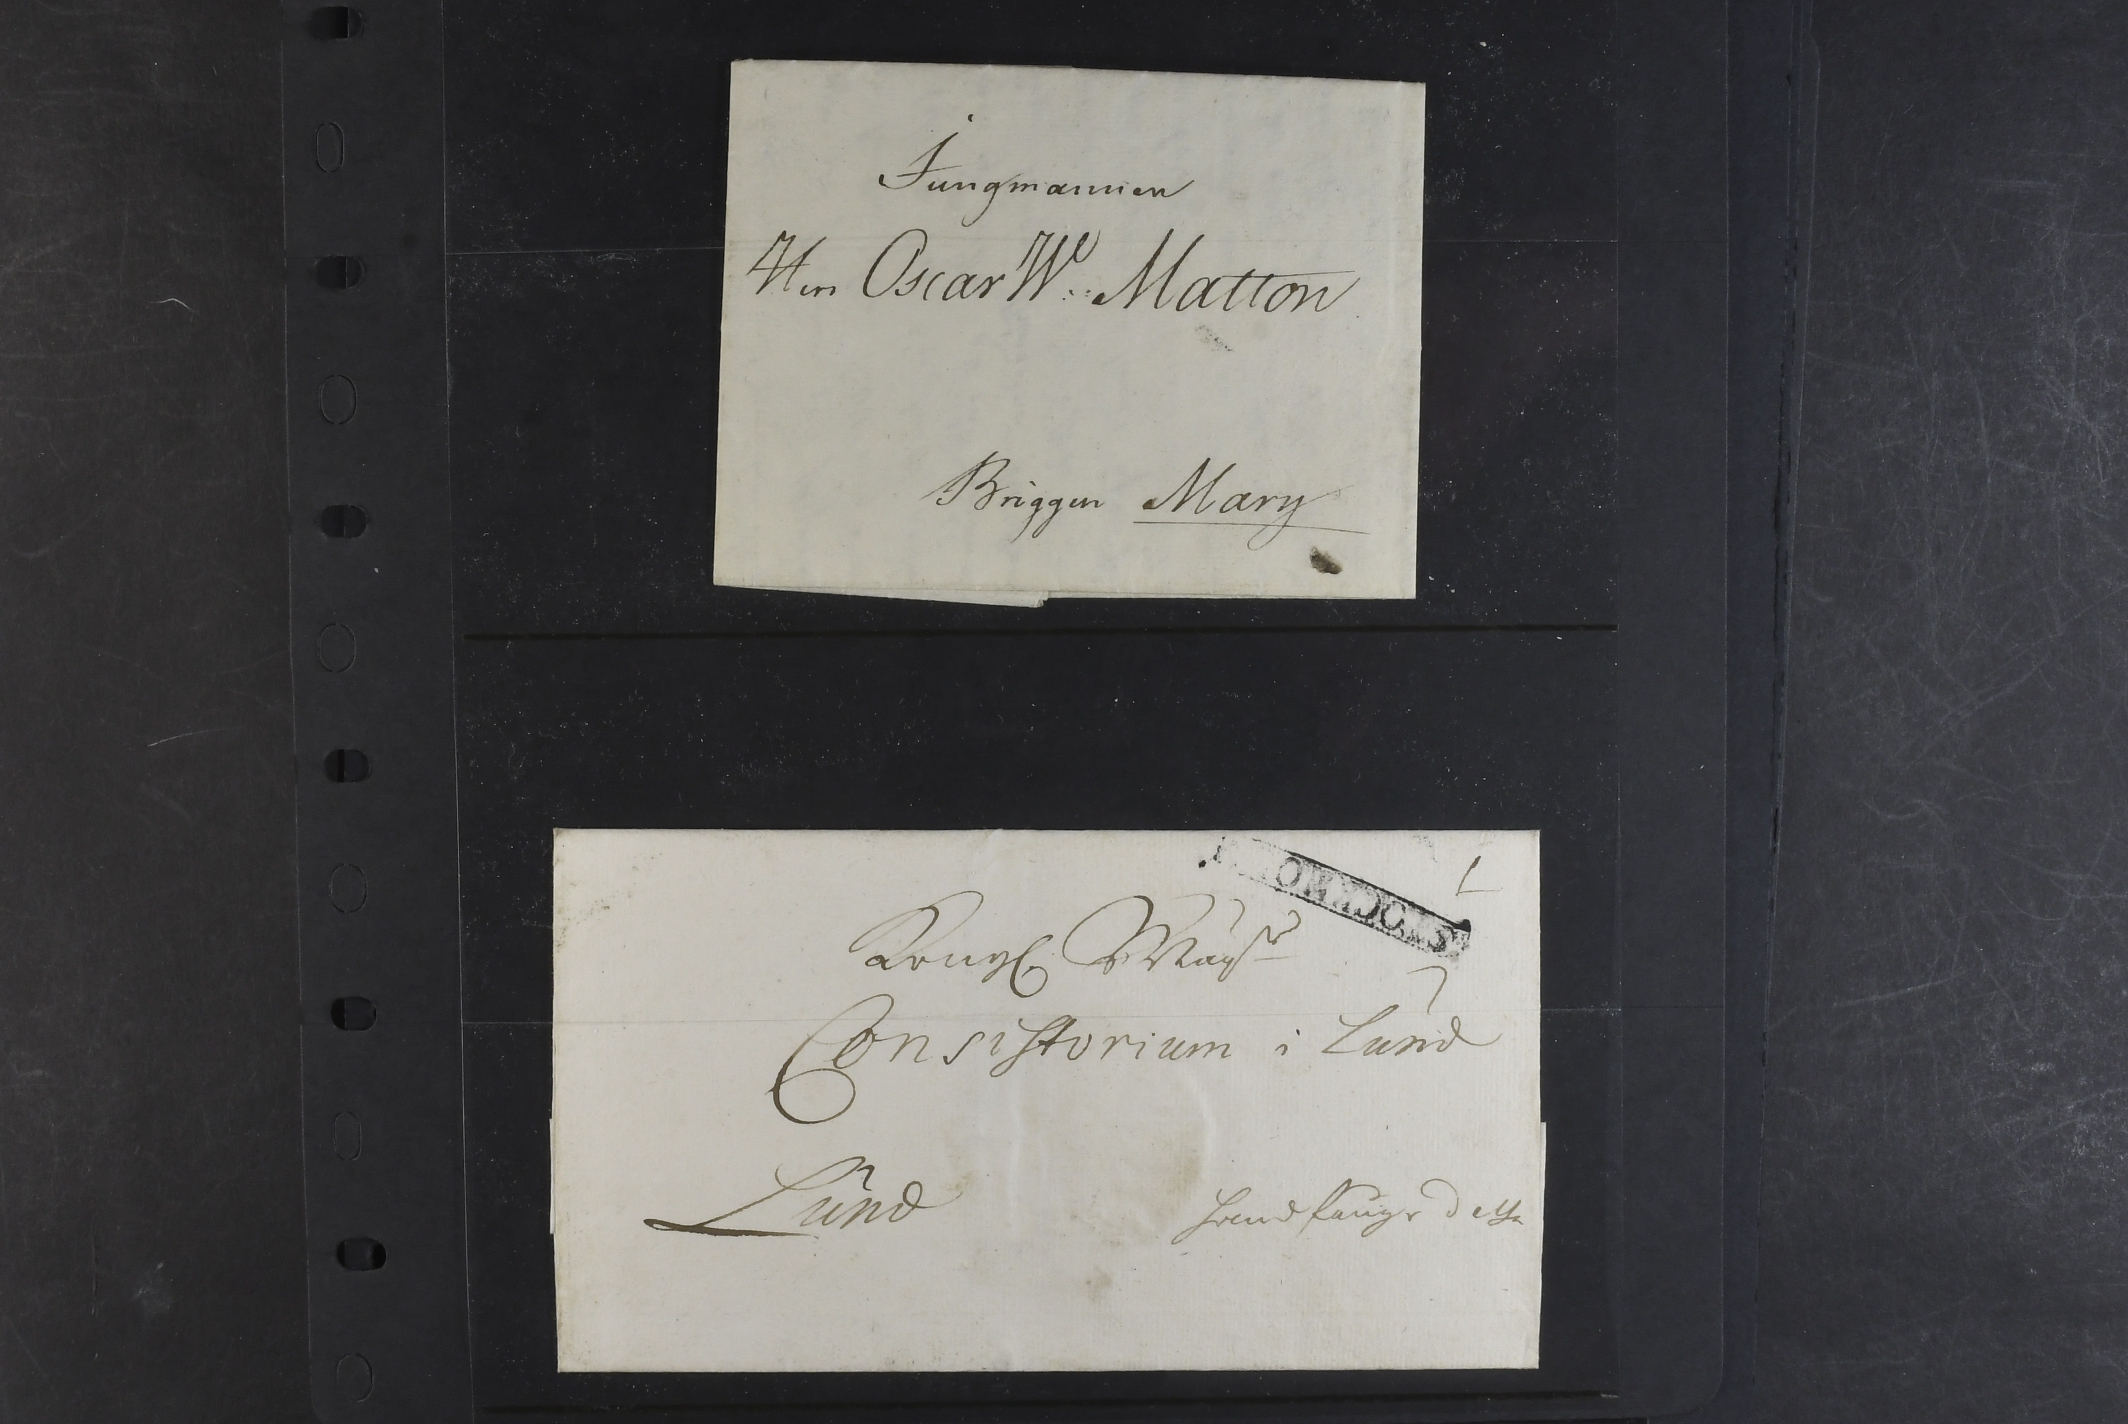 Jungmannen
Herr Oscar Wo. Matton
Briggen Mary
Kongl. Maijts
Consistorium i Lund
Lund